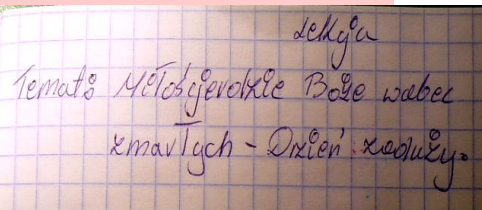 Lekcja
Temat: Miłosierdzie Boże wobec
zmarłych - Dzień zaduszny.